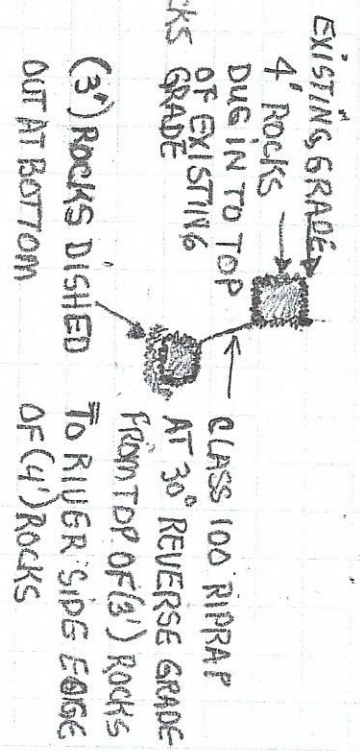 EXISTING GRADE
4' ROCKS
DUG IN TO TOP
OF EXISTING
GRADE
(3') ROCKS DISHED
OUT AT BOTTOM
CLASS 100 RIPRAP
AT 30° REVERSE GRADE
FROM TOP OF (3') ROCKS
TO RIVER SIDE EDGE
OF (4') ROCKS